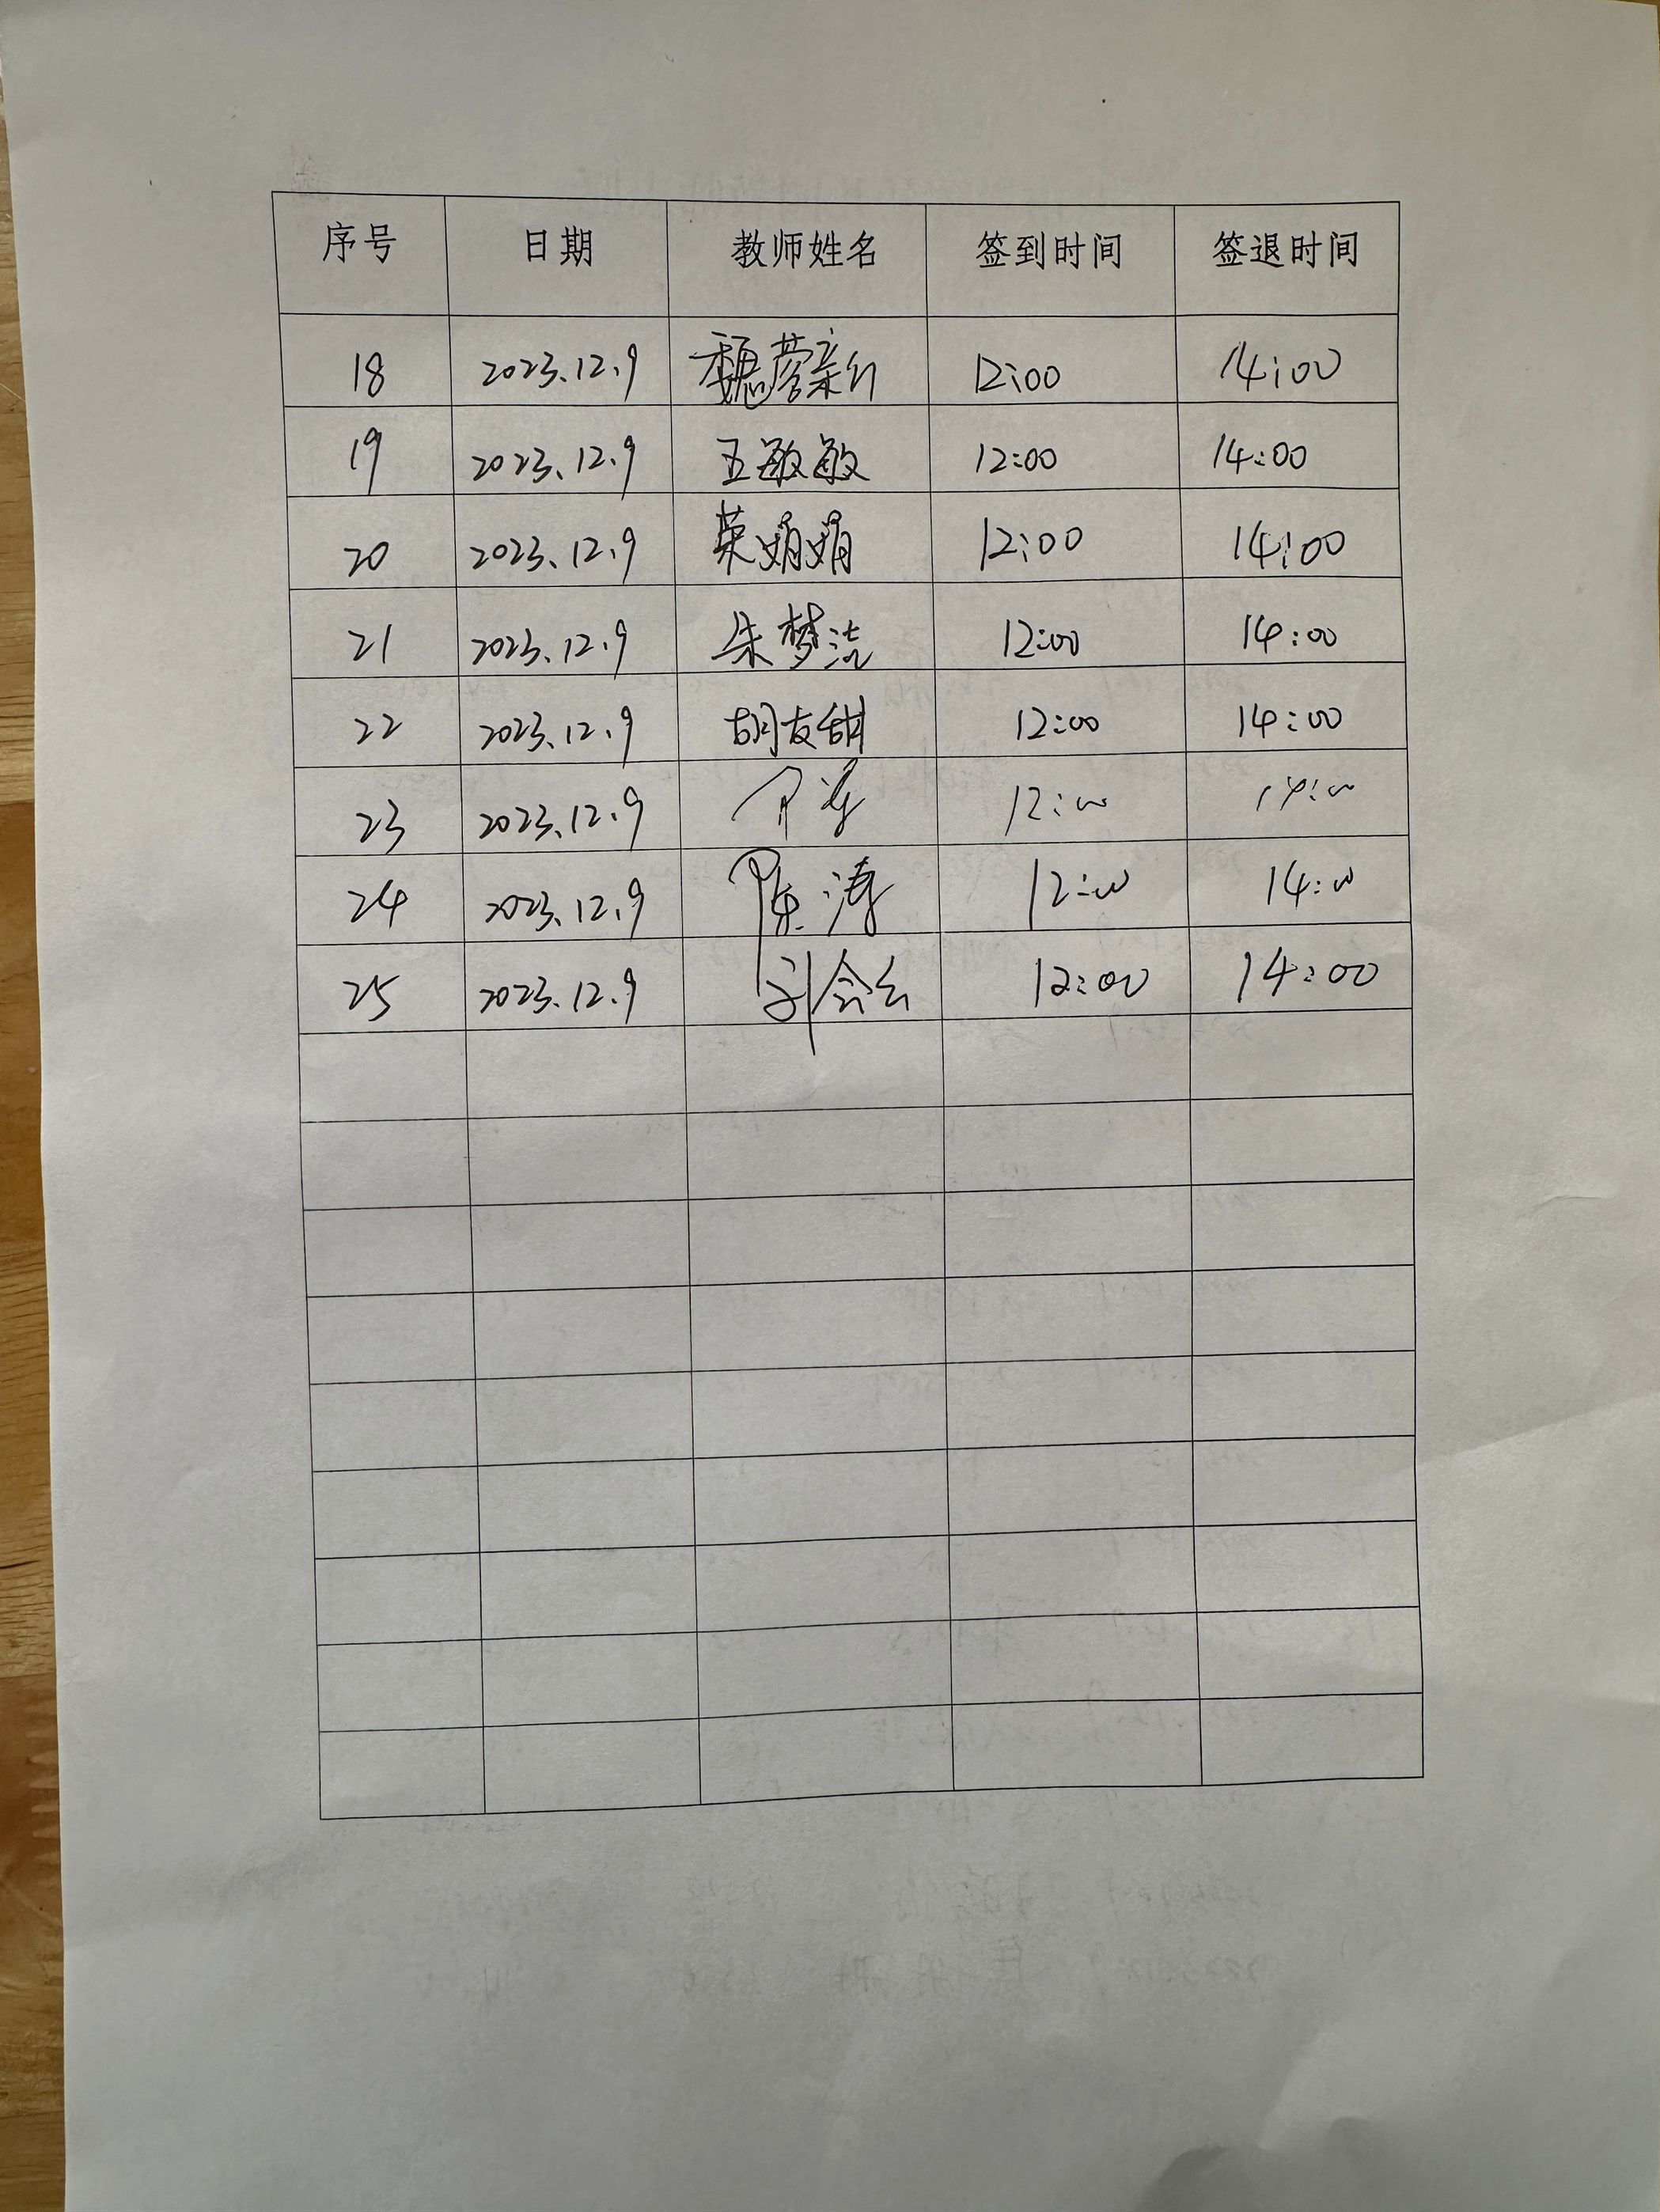 序号 日期 教师姓名 签到时间 签退时间
18 2023.12.9 魏营新 12:00 14:00
19 2023.12.9 王敏敏 12:00 14:00
20 2023.12.9 英娟娟 12:00 14:00
21 2023.12.9 朱梦洁 12:00 14:00
22 2023.12.9 胡友甜 12:00 14:00
23 2023.12.9 12:00 14:00
24 2023.12.9 陈涛 12:00 14:00
25 2023.12.9 刘会云 12:00 14:00